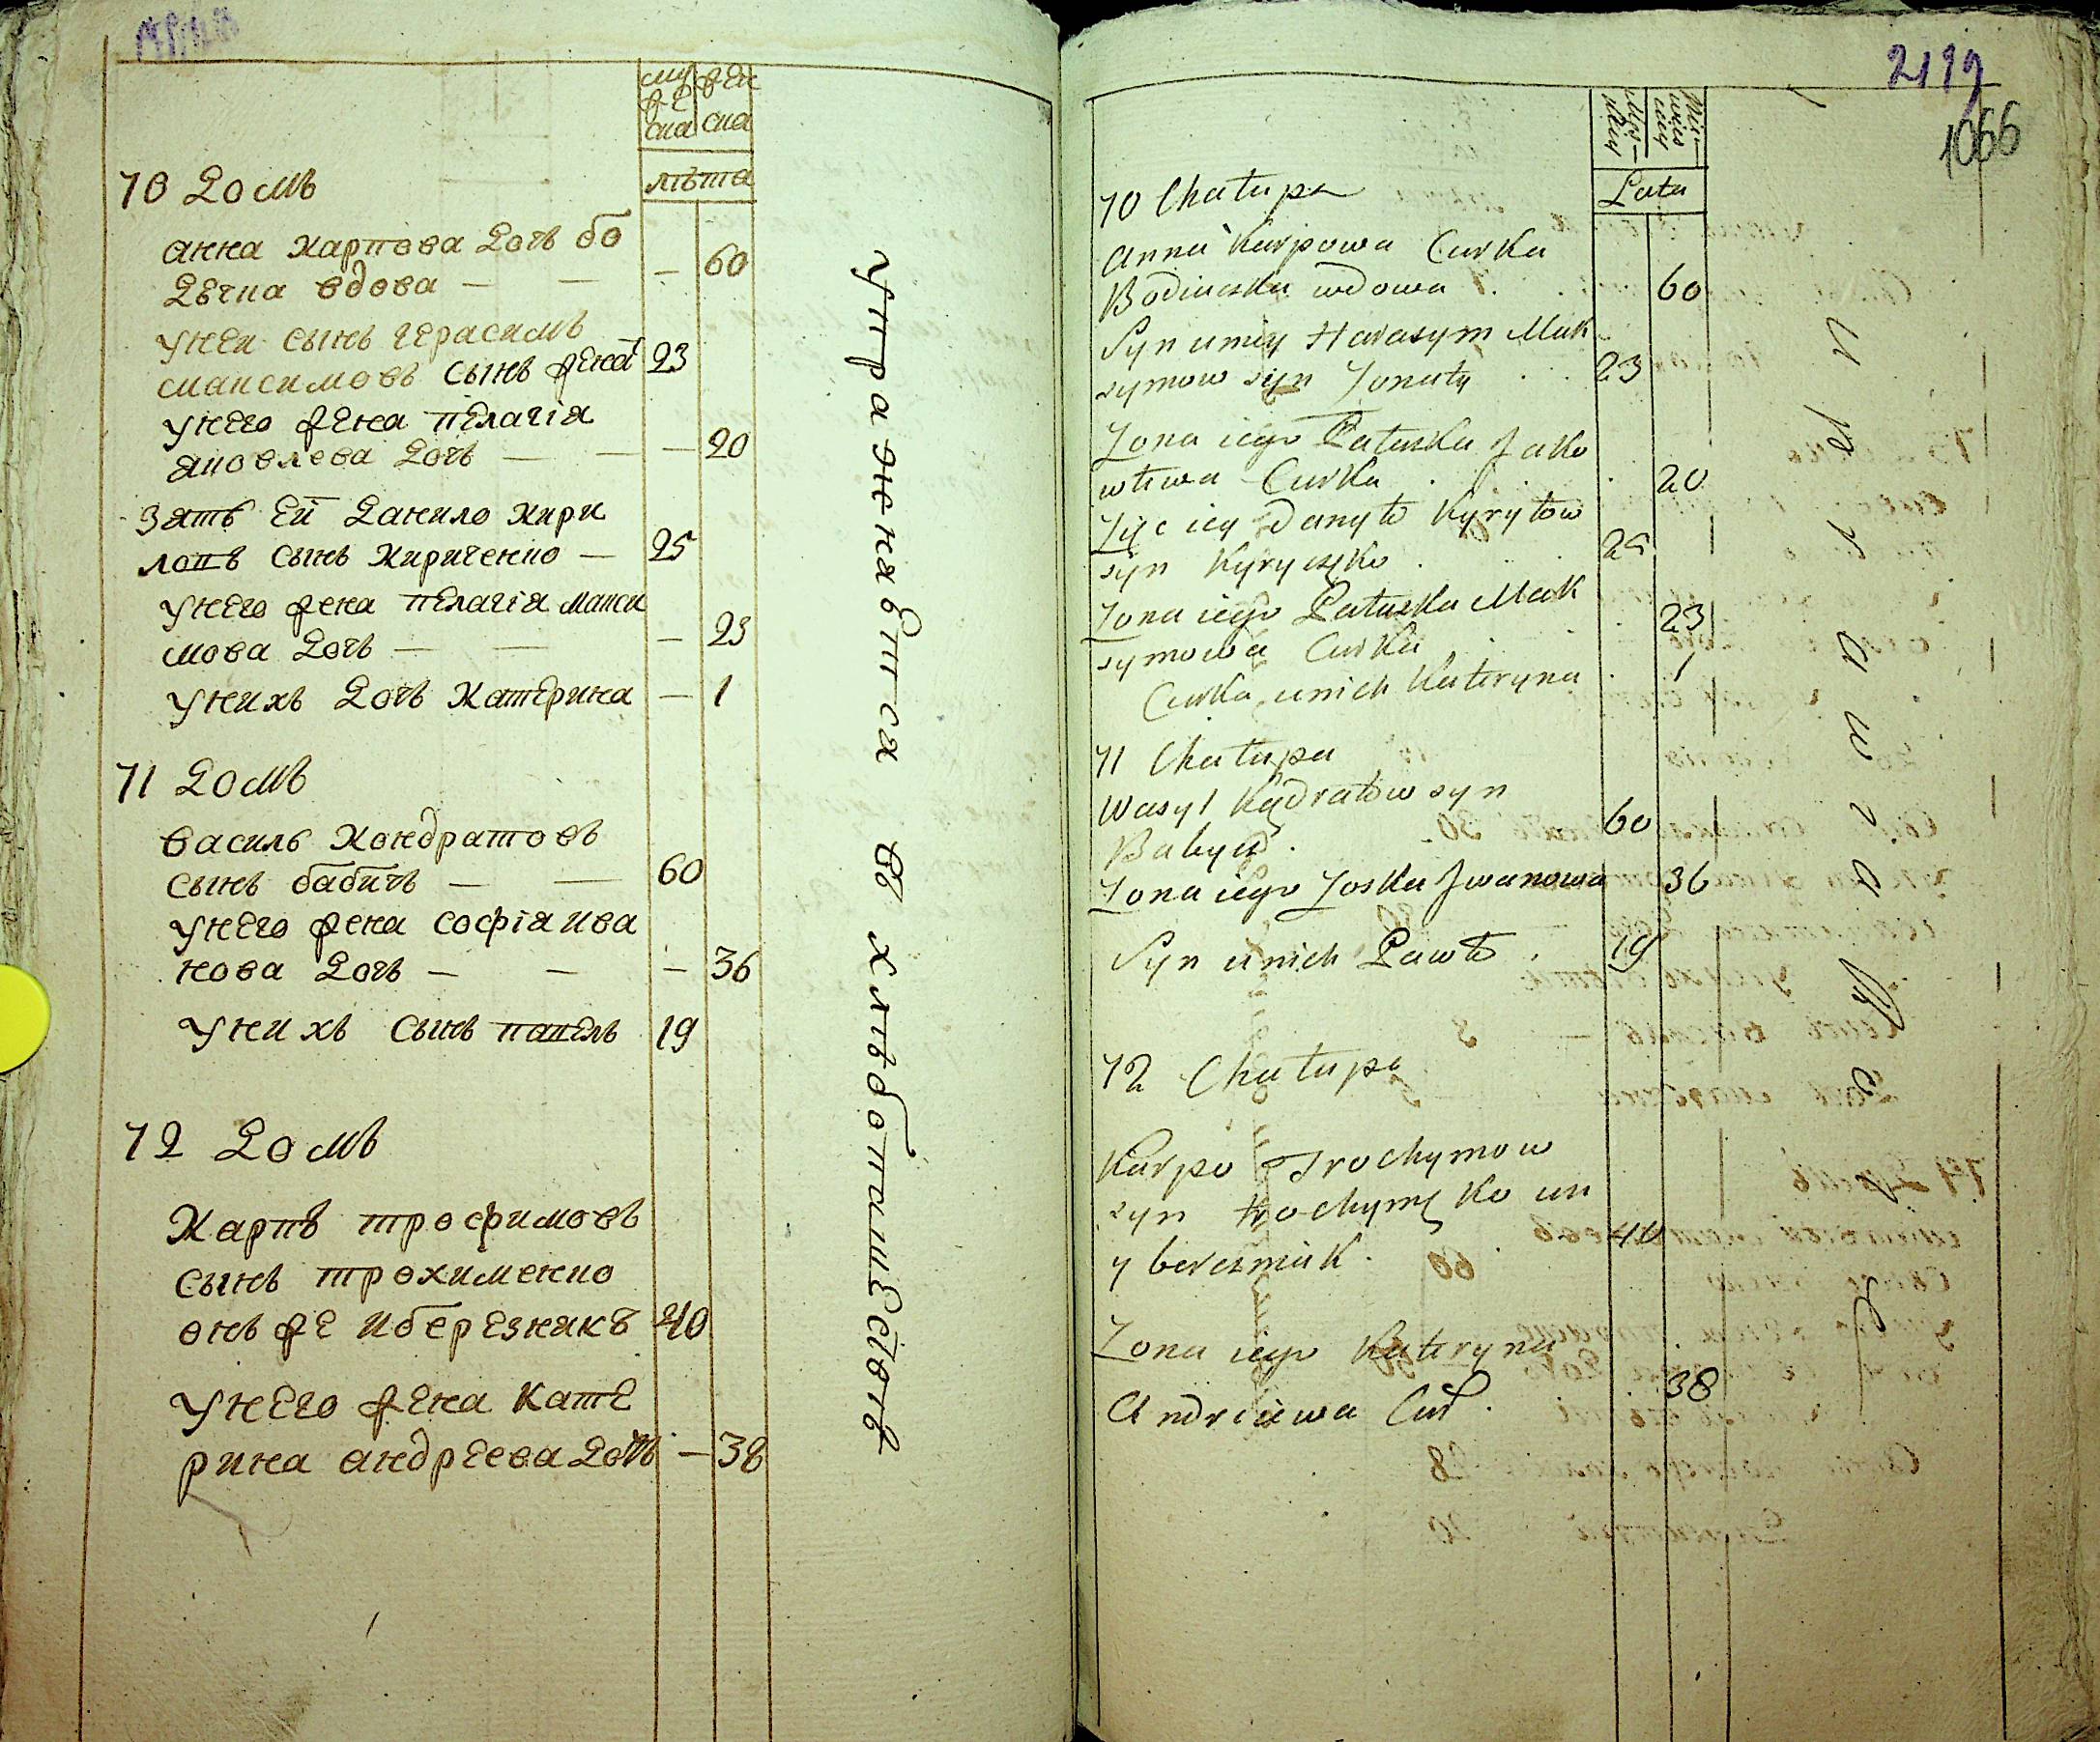 муже
ска
жен
ска
лѣта
70 Домъ
анна Карпова Дочь бо
Дечка вдова — — — 60
Унеи сынъ герасимъ
максимовъ сынъ женат 23
Унего жена пелагія
яковлева Дочь — — — 20
Зять Ей Данило Кири
ловъ сынъ Кириченко — 25
Унего жена пелагія макси
мова Дочь — — — 23
Унихъ Дочь Катерина — 1
71 Домъ
василь Кондратовъ
сынъ бабичъ — — 60
Унего жена софія ива
нова Дочь — — — 36
Унихъ сынъ павелъ 19
72 Домъ
Карпъ трофимовъ
сынъ трохименко
онъ же и березникъ 40
Унего жена Кате
рина андреева Дочь — 38
упражняется въ хлѣбопашествѣ
1066
Lata
70 Chałupa
Anna Karpowa Curka
Bodiaczka wdowa . . 60
Syn uniey Harasym Mak
symow syn Zonaty . . 23
Zona iego Pałaszka Jako
wlewa Curka . . . 20
Zięć iey Danyło Kyryłow
syn Kyryczko . 25
Zona iego Pałaszka Mak
symowa Curka . . . 23
Curka unich Kateryna . 1
71 Chałupa
Wasyl Kądratow syn
Babycz . 60
Zona iego Zoska Jwanowa 36
Syn unich Pawło . 19
72 Chałupa
Karpo Trochymow
syn Trochymęko un
y berezniak . . 40
Zona iego Kateryna
Andriiewa Cur . . . 38